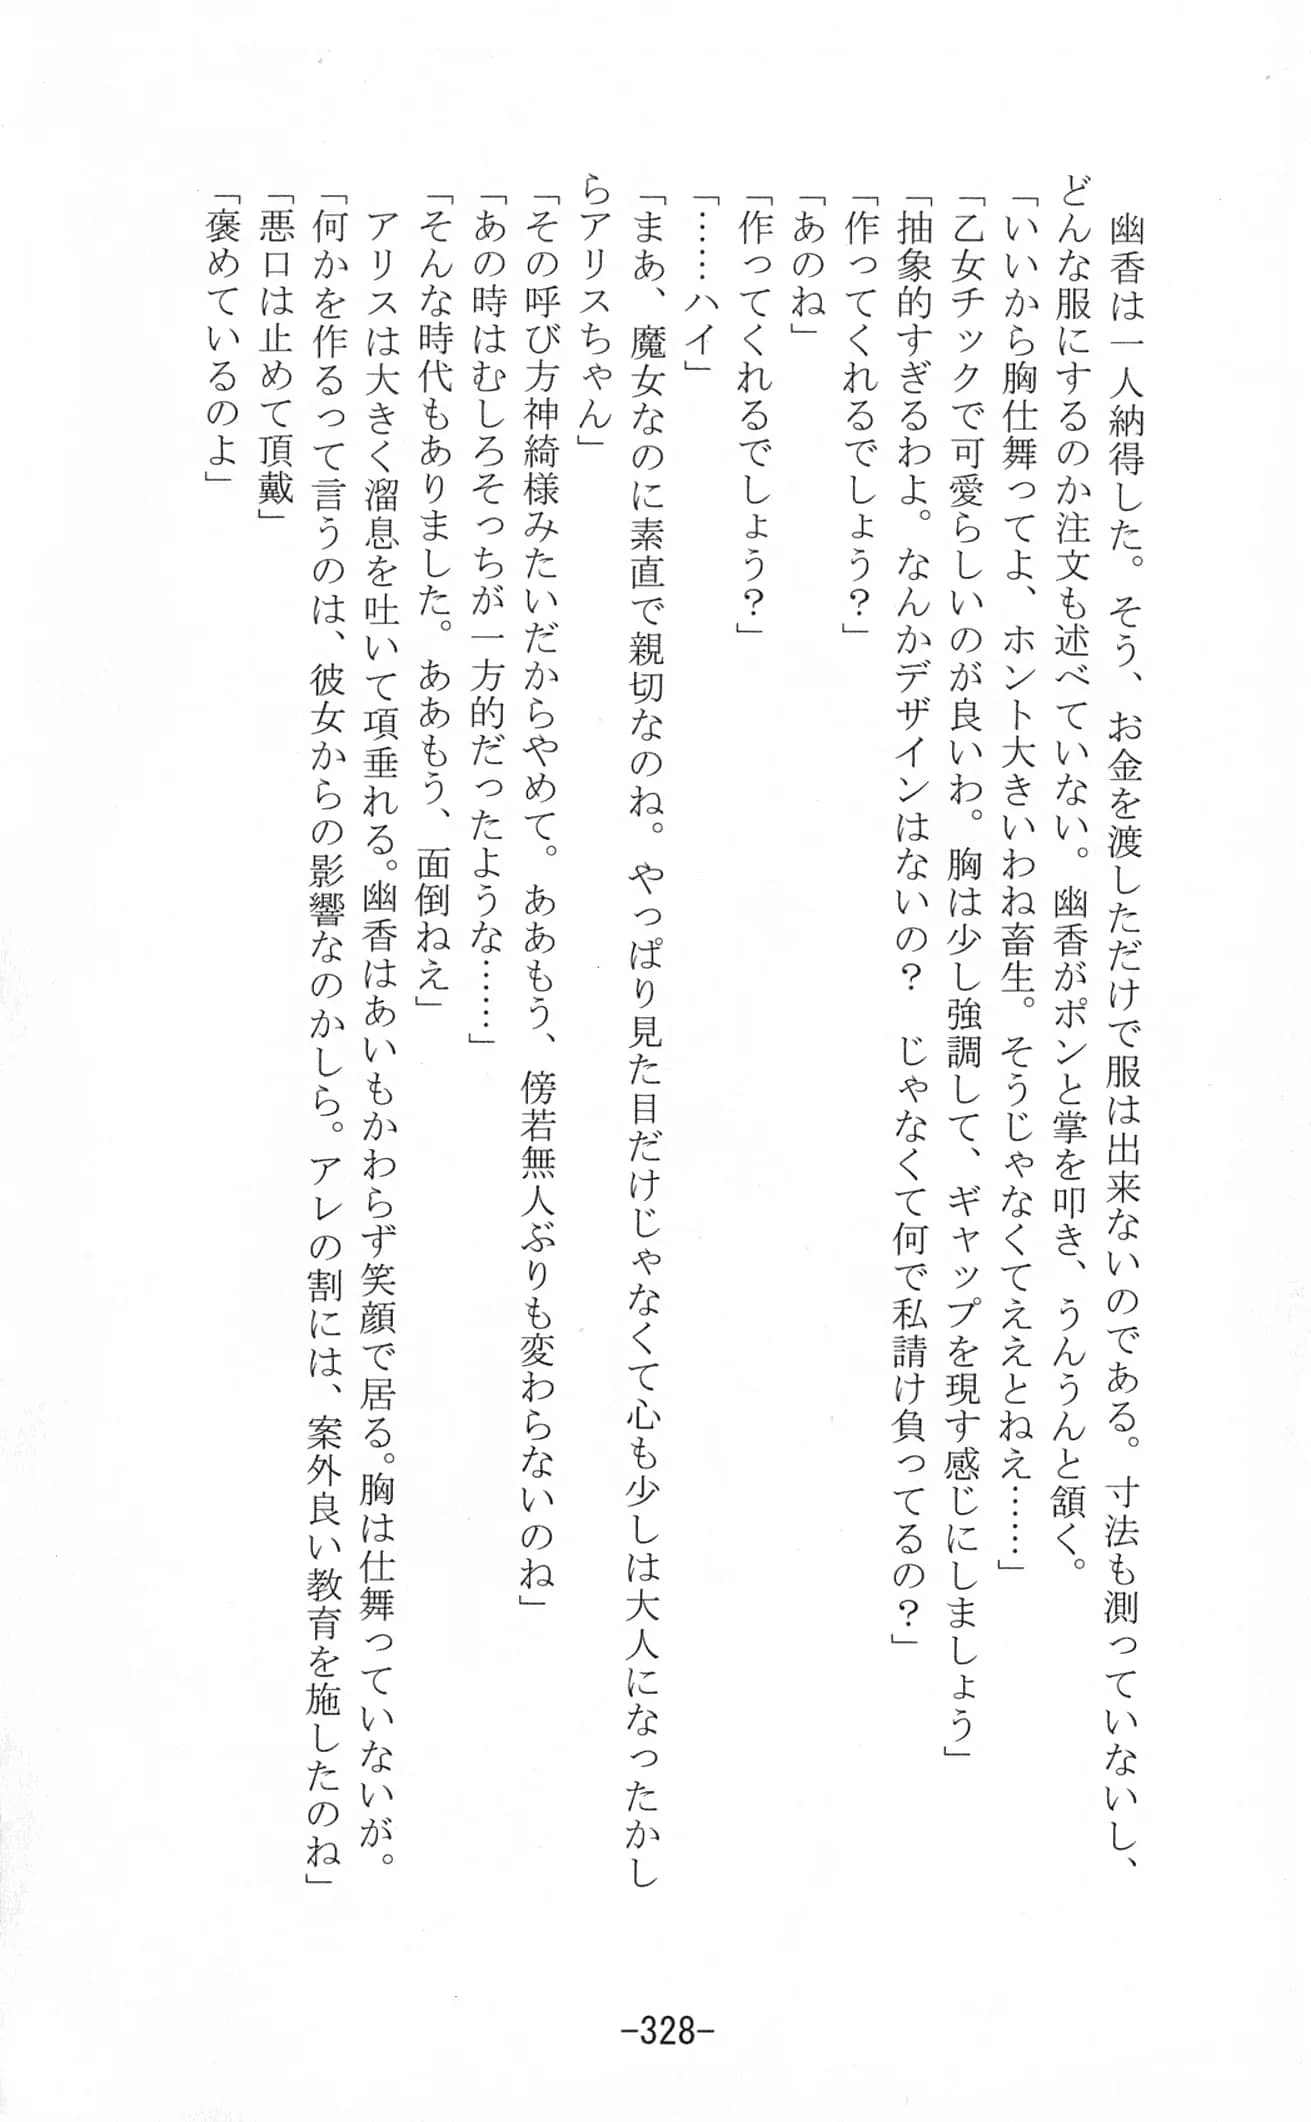 幽香は一人納得した。そう、お金を渡しただけで服は出来ないのである。寸法も測っていないし、
どんな服にするのか注文も述べていない。幽香がポンと掌を叩き、うんうんと頷く。
「いいから胸仕舞ってよ、ホント大きいわね畜生。そうじゃなくてええとねえ……」
「乙女チックで可愛らしいのが良いわ。胸は少し強調して、ギャップを現す感じにしましょう」
「抽象的すぎるわよ。なんかデザインはないの？　じゃなくて何で私請け負ってるの？」
「作ってくれるでしょう？」
「あのね」
「作ってくれるでしょう？」
「……ハイ」
「まあ、魔女なのに素直で親切なのね。やっぱり見た目だけじゃなくて心も少しは大人になったかし
らアリスちゃん」
「その呼び方神綺様みたいだからやめて。ああもう、傍若無人ぶりも変わらないのね」
「あの時はむしろそっちが一方的だったような……」
「そんな時代もありました。ああもう、面倒ねえ」
　アリスは大きく溜息を吐いて項垂れる。幽香はあいもかわらず笑顔で居る。胸は仕舞っていないが。
「何かを作るって言うのは、彼女からの影響なのかしら。アレの割には、案外良い教育を施したのね」
「悪口は止めて頂戴」
「褒めているのよ」
-328-